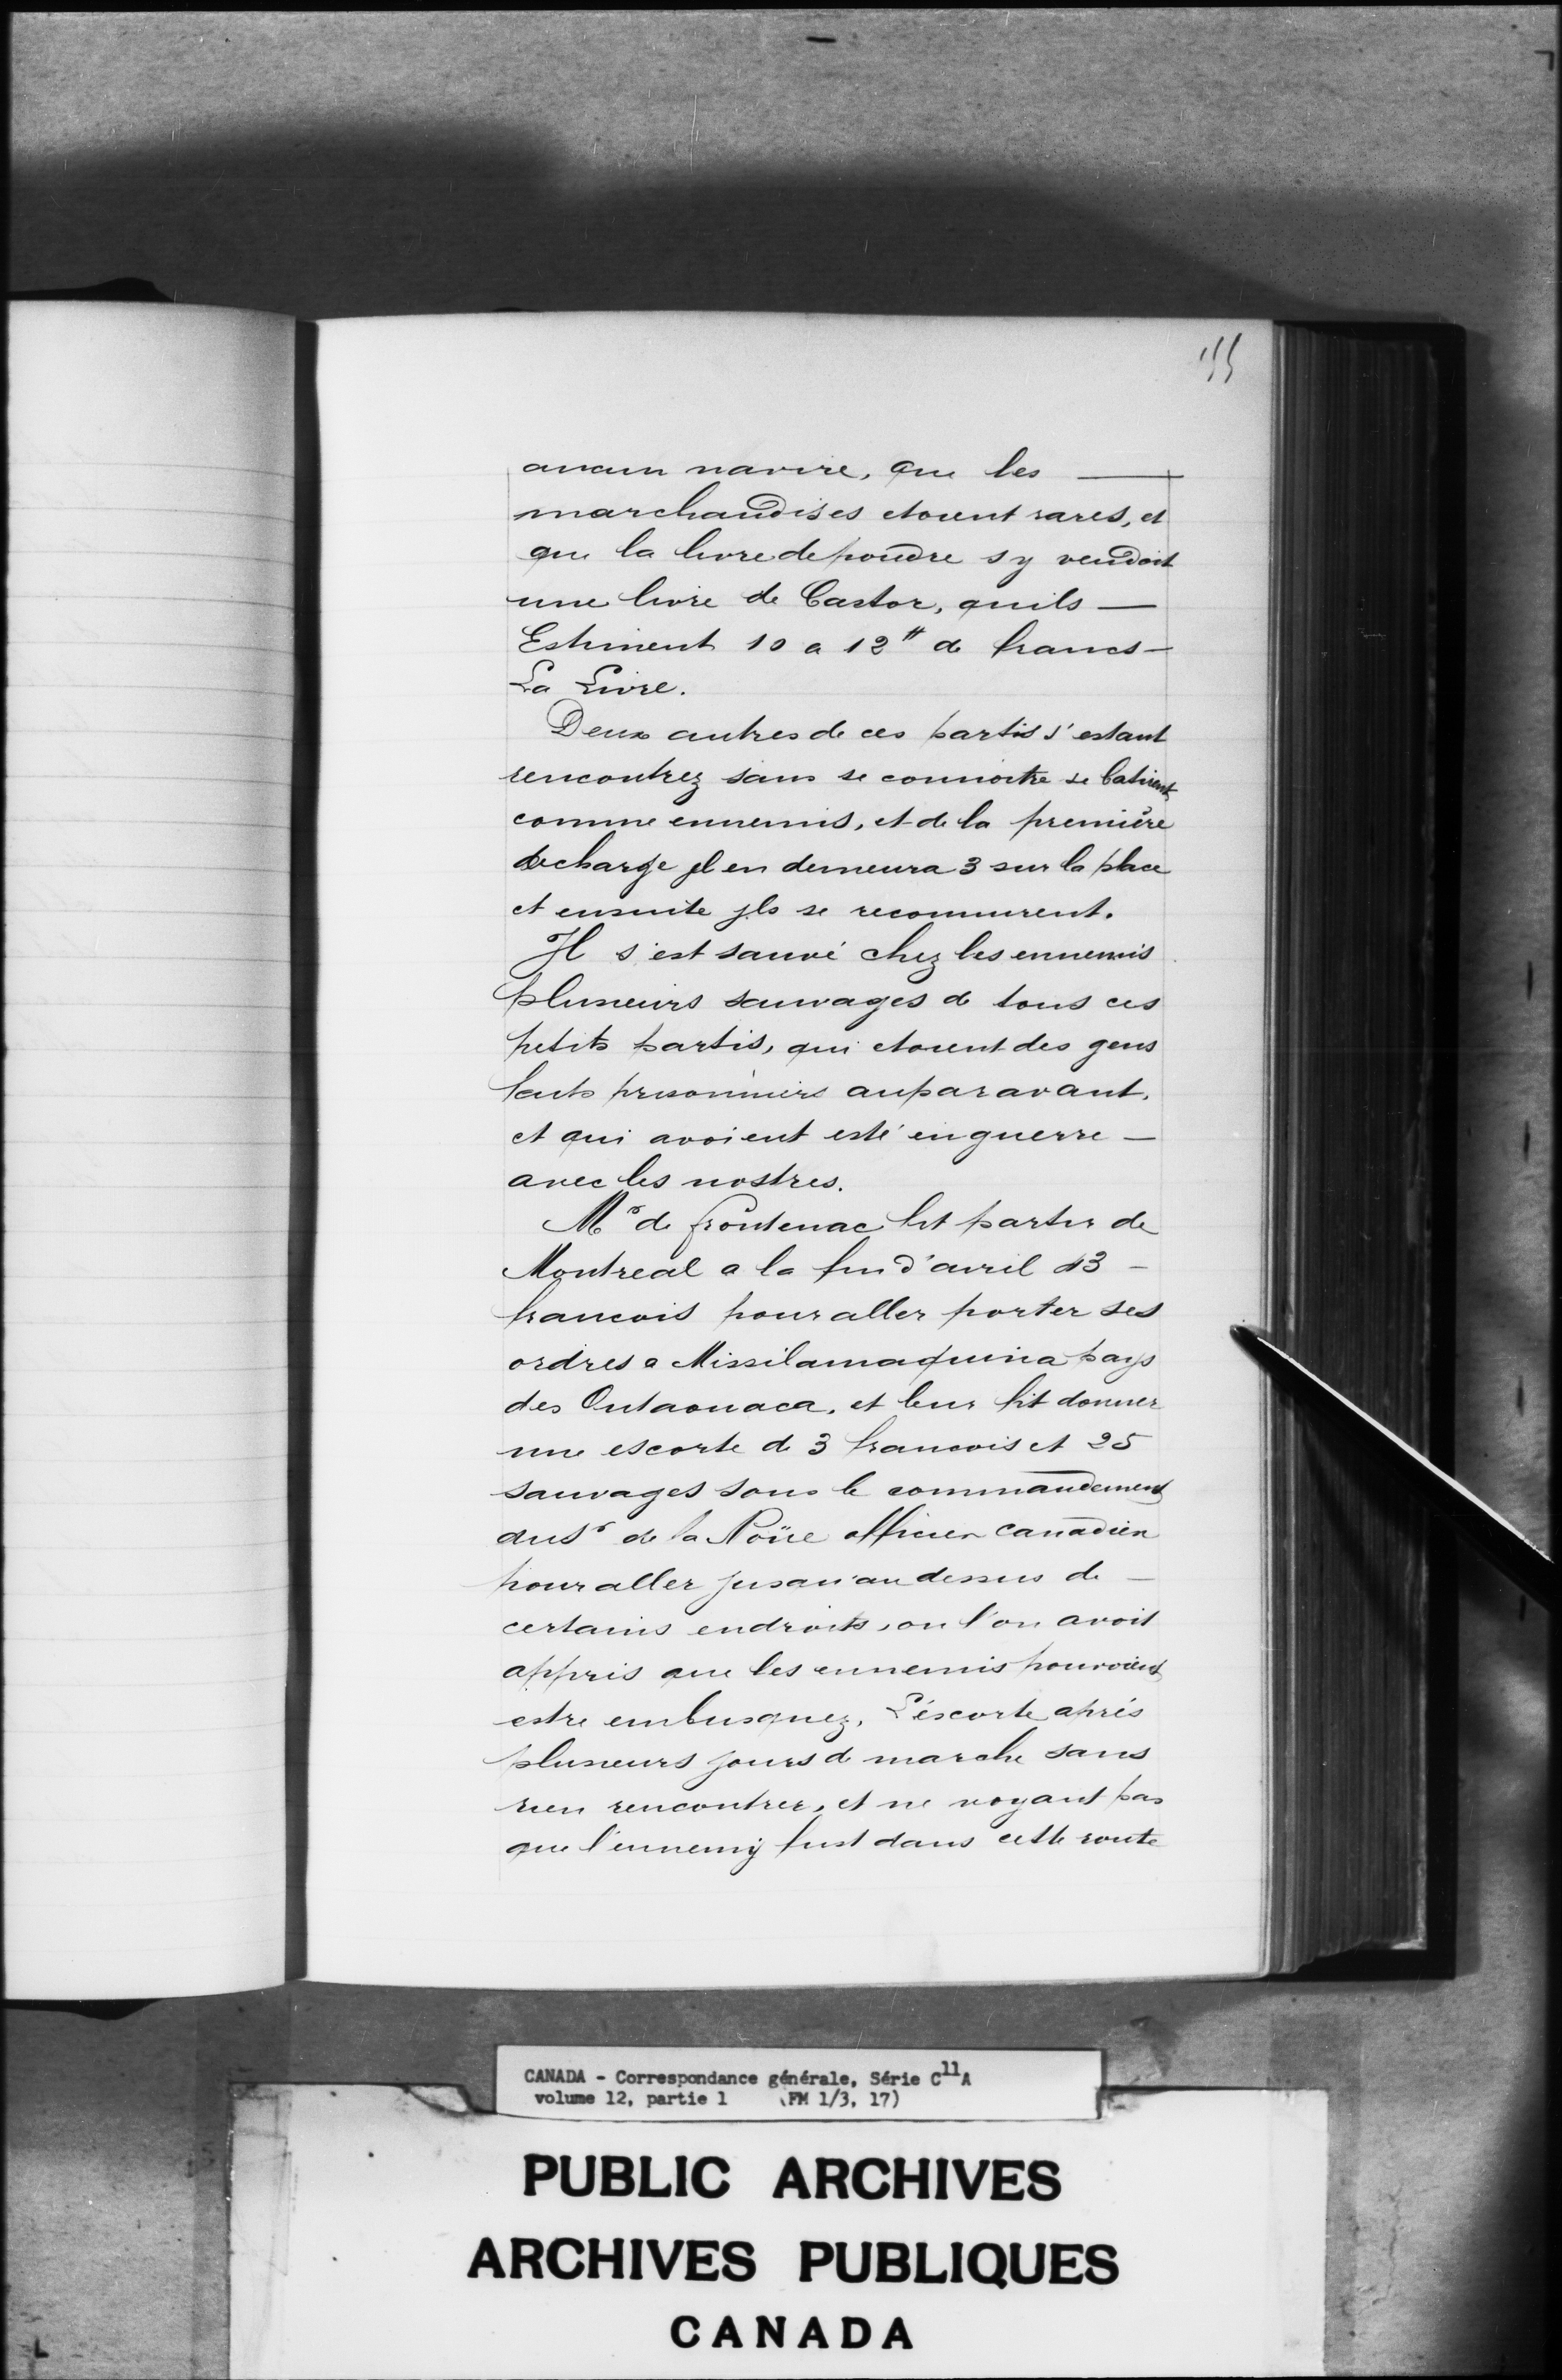 155
aucun navire, que les —
marchandises etoient rares, et
que la livre de poudre s y vendoit
une livre de Castor, quils —
Estiment 10 a 12# de francs —
La Livre.
Deux autres de ces partis s'estant
rencontrez sans se connoitre se batirent
comme ennemis, et de la première
decharge jl en demeura 3 sur la place
et ensuite jls se reconnurent.
Il s'est sauvé chez les ennemis
plusieurs sauvages de tous ces
petits partis, qui etoient des gens
faits prisonniers auparavant,
et qui avoient esté en guerre —
avec les nostres.
Mr de frontenac fit partir de
Montreal a la fin d'avril 43 —
francois pour aller porter ses
ordres a Missilamaquina pays
des Outaouaca, et leur fit donner
une escorte de 3 francois et 25
sauvages sous le commandement
du Sr de la Noüe officier canadien
pour aller jusqu'au dessus de —
certains endroits, ou l'on avoit
appris que les ennemis pouvoient
estre embusquez, L'éscorte aprés
plusieurs jours de marche sans
rien rencontrer, et ne voyant pas
que l'ennemy fust dans cette route
CANADA - Correspondance générale, Série C11A
volume 12, partie 1 (FM 1/3, 17)
PUBLIC ARCHIVES
ARCHIVES PUBLIQUES
CANADA